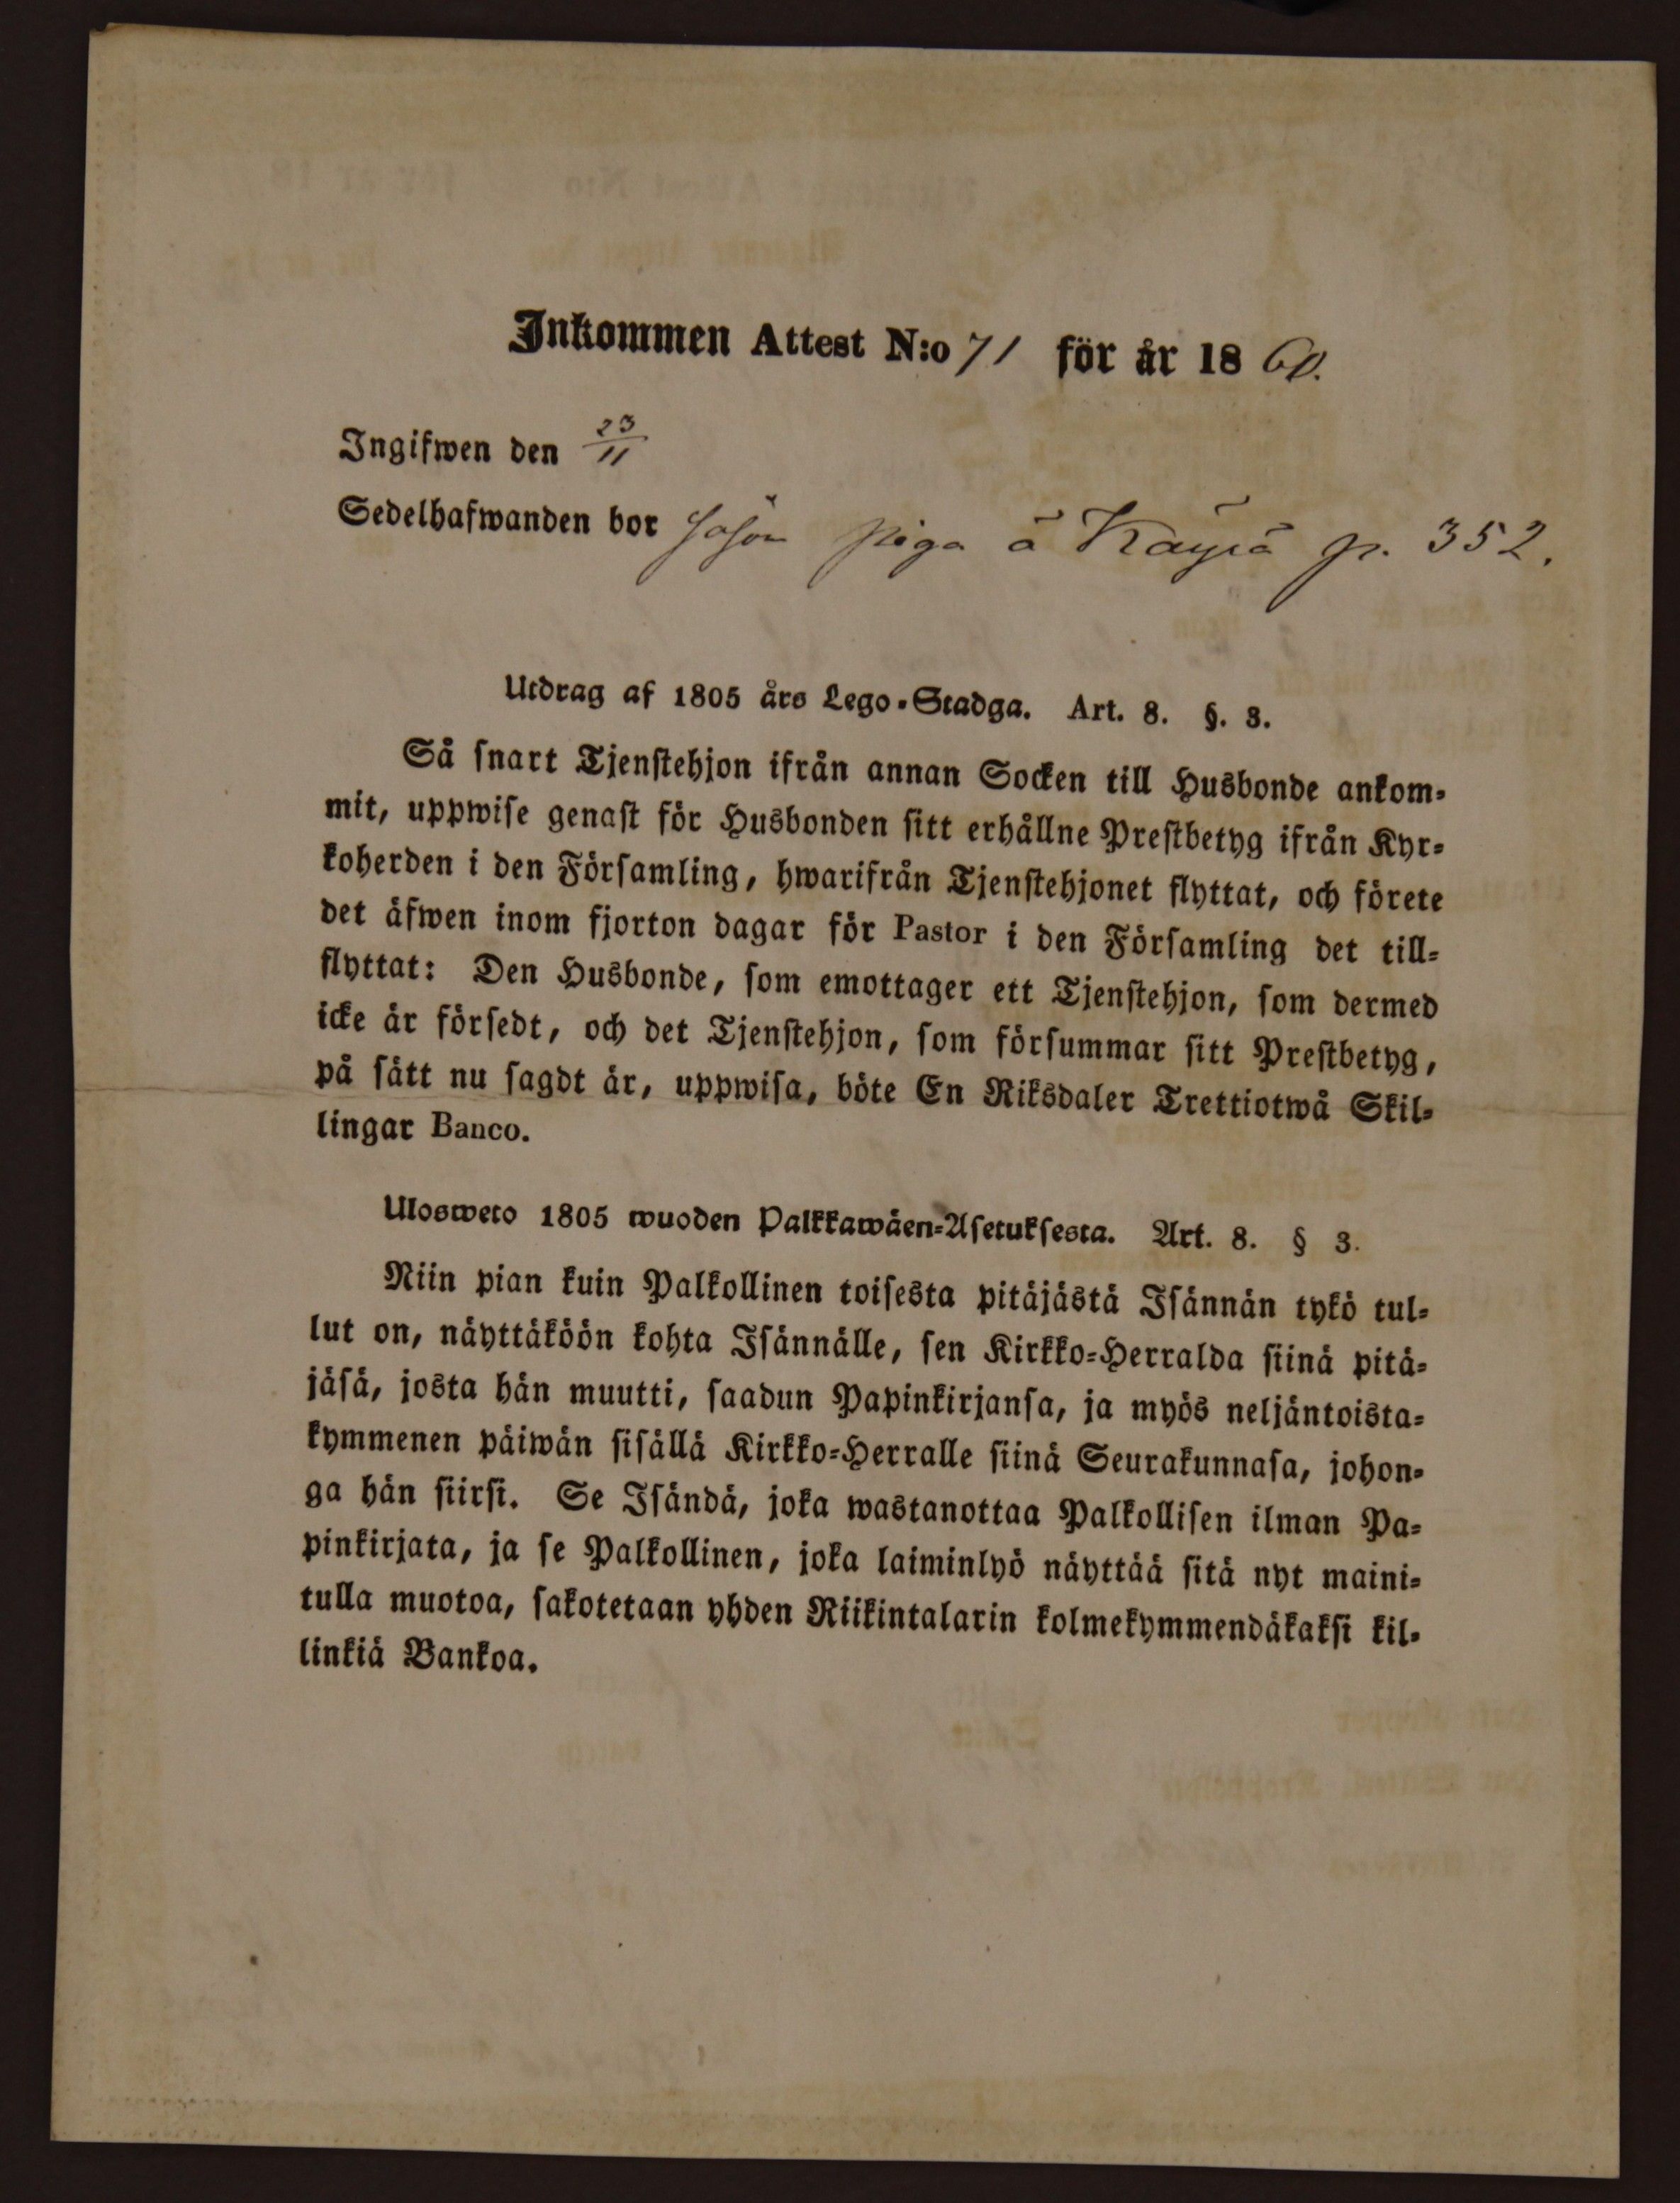 Inkommen Attest N:o 71 för år 1860.
Ingifwen den 23/11
Sedelhafwanden bor såsom piga å Käyrä p. 352.
Utdrag af 1805 års Lego-Stadga. Art. 8. §. 3.
Så snart Tjenstehjon ifrån annan Socken till Husbonde ankom-
mit, uppwise genast för Husbonden sitt erhållne Prestbetyg ifrån Kyr-
koherden i den Församling, hwarifrån Tjenstehjonet flyttat, och förete
det äfwen inom fjorton dagar för Pastor i den Församling det till-
flyttat: Den Husbonde, som emottager ett Tjenstehjon, som dermed
icke är försedt, och det Tjenstehjon, som försummar sitt Prestbetyg,
på sätt nu sagdt är, uppwisa, böte En Riksdaler Trettiotwå Skil-
lingar Banco.
Ulosweto 1805 wuoden Palkkawäen-Asetuksesta. Art. 8. § 3.
Niin pian kuin Palkollinen toisesta pitäjästä Isännän tykö tul-
lut on, näyttäköön kohta Isännälle, sen Kirkko-Herralda siinä pitä-
jäsä, josta hän muutti, saadun Papinkirjansa, ja myös neljäntoista-
kymmenen päiwän sisällä Kirkko-Herralle siinä Seurakunnasa, johon-
ga hän siirsi. Se Isändä, joka wastanottaa Palkollisen ilman Pa-
pinkirjata, ja se Palkollinen, joka laiminlyö näyttää sitä nyt maini-
tulla muotoa, sakotetaan yhden Riikintalarin kolmekymmendäkaksi kil-
linkiä Bankoa.